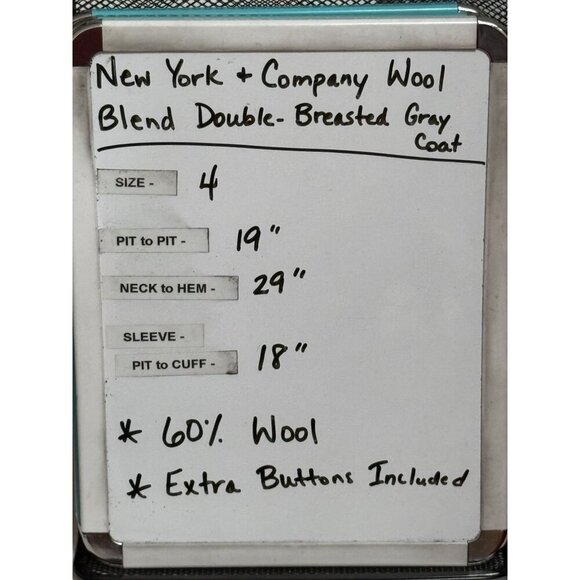 New York + Company Wool
Blend Double-Breasted Gray
Coat
SIZE - 4
PIT to PIT - 19"
NECK to HEM - 29"
SLEEVE -
PIT to CUFF - 18"
* 60% Wool
* Extra Buttons Included